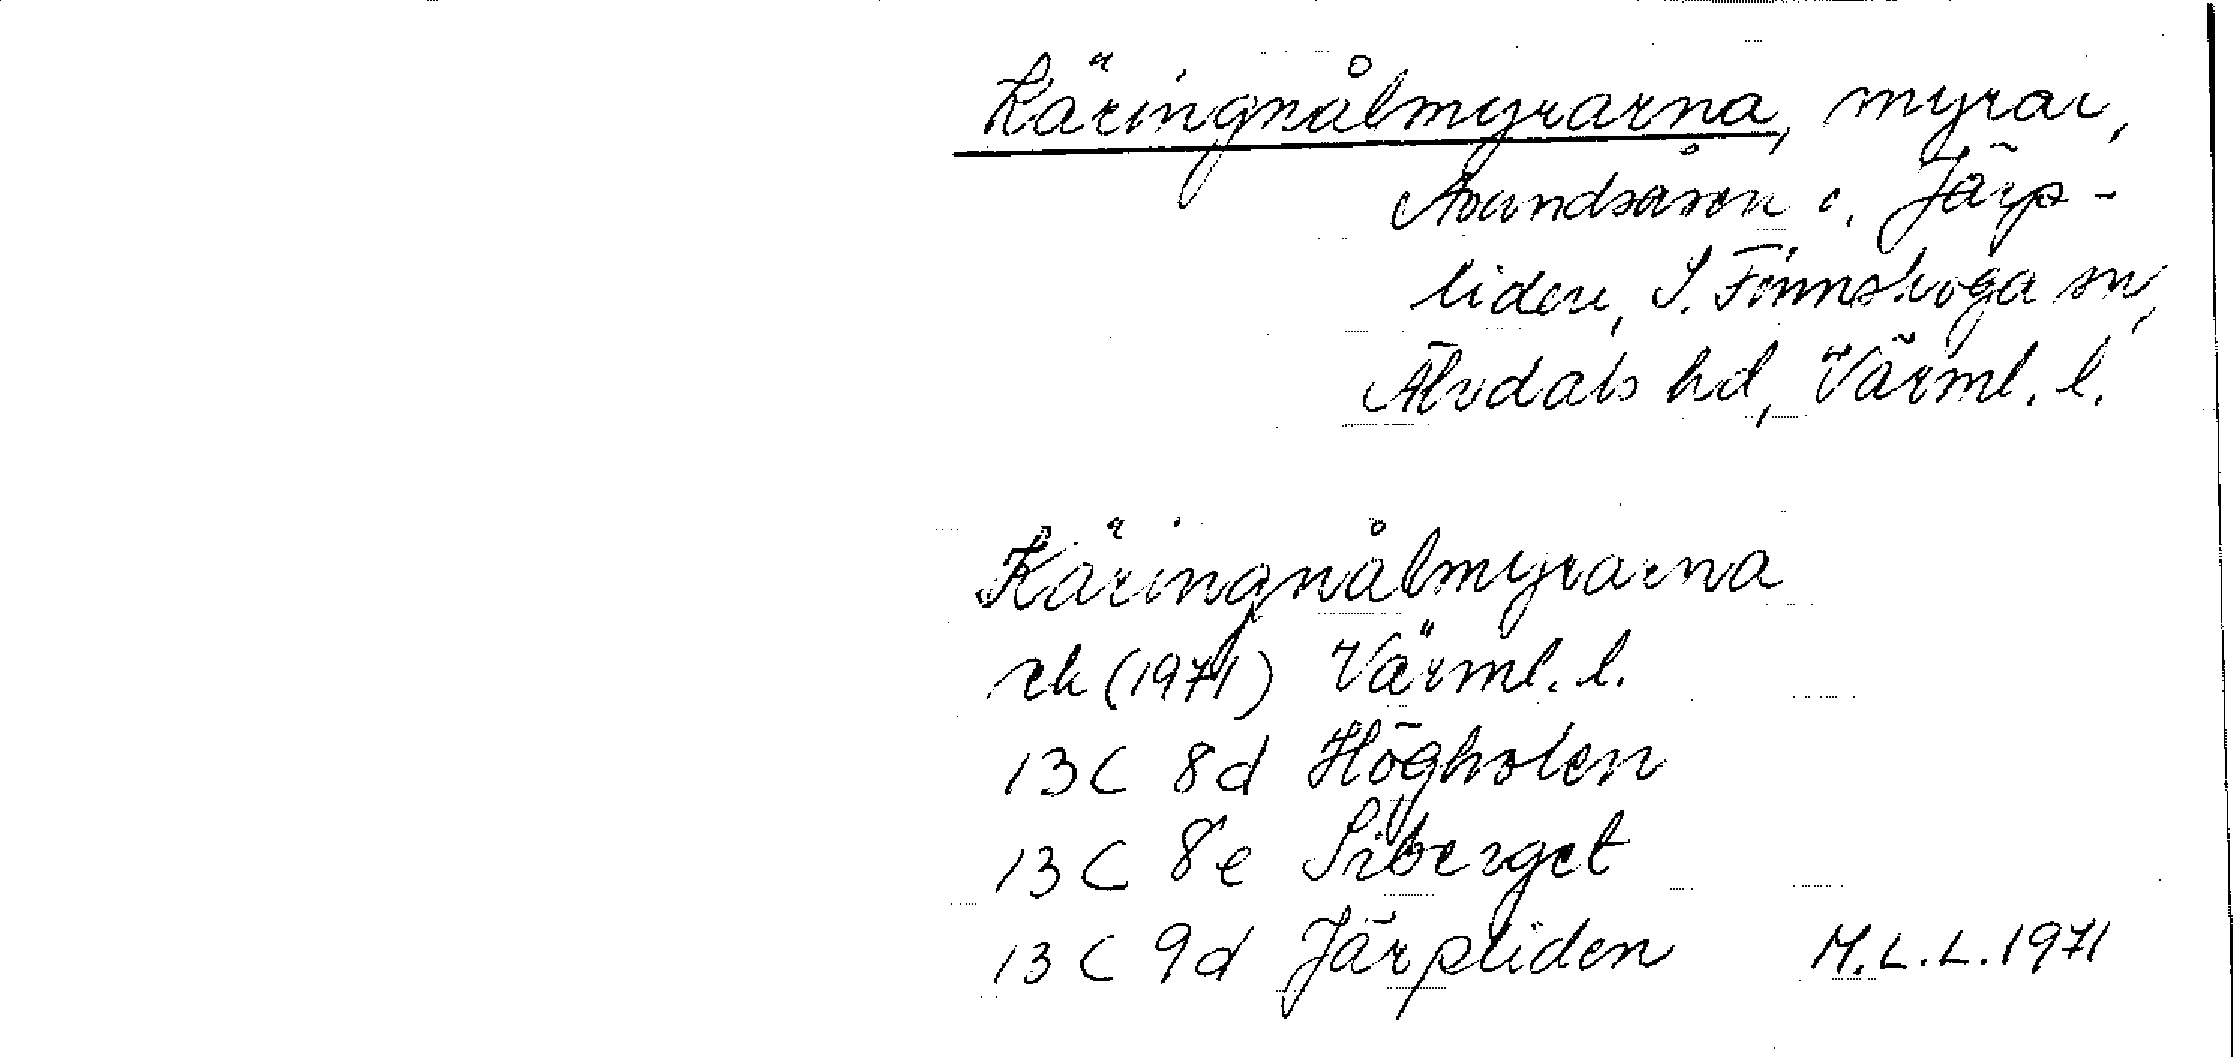 Käringnålmyrarna, myrar,
Avundsåsen o. Järp-
liden, S. Finnskoga sn,
Älvdals hd, Värml. l.
Käringnålmyrarna
ek (1971) Värml. l.
13C 8d Högholen
13C 8e Liberget
13C 9d Järpliden M.L.L. 1971